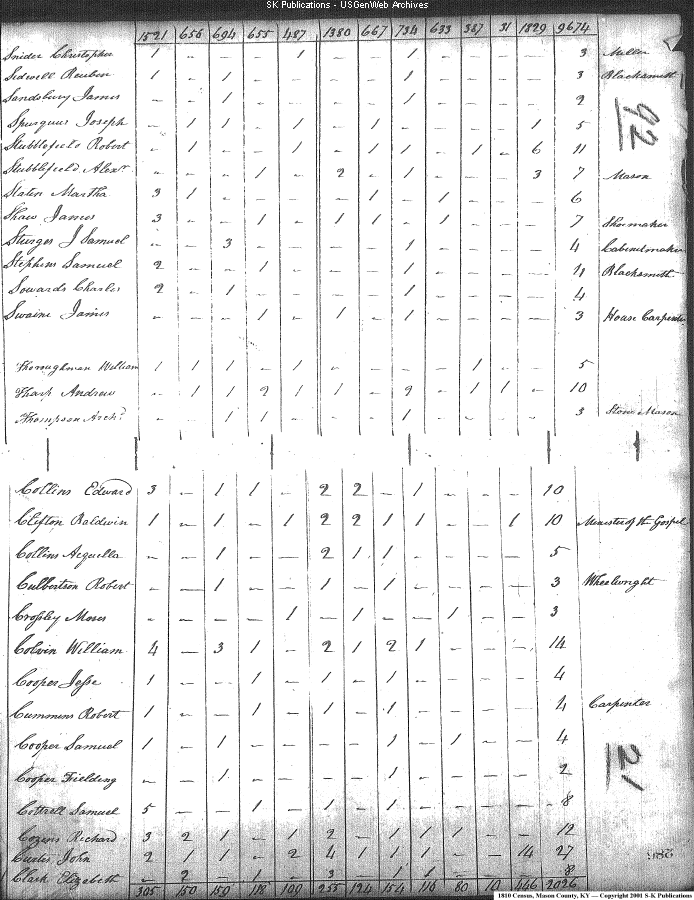 SK Publications - USGenWeb Archives
1521 656 694 655 487 1380 667 734 633 387 31 1829 9674
Snider Christopher 1 - - - 1 - - 1 - - - - 3 Miller
Sidwell Reuben 1 - 1 - - - - 1 - - - - 3 Blacksmith
Sandsbury James - - 1 - - - - 1 - - - - 2
Spurguus Joseph - 1 1 - 1 - 1 - - - - 1 5
92
Stubblefield Robert - 1 - - 1 - - 1 - 1 - 6 11
Stubblefield Alexr - - - 1 - 2 - 1 - - - 3 7 Mason
Staten Martha 3 1 - - - - 1 - 1 - - - 6
Shaw James 3 - - 1 - 1 1 - 1 - - - 7 Shoemaker
Sturges J Samuel - - 3 - - - - 1 - - - - 4 Cabinetmaker
Stephens Samuel 2 - - 1 - - - 1 - - - - 4 Blacksmith
Sowards Charles 2 - 1 - - - - 1 - - - - 4
Swaine James - - - 1 - 1 - 1 - - - - 3 House Carpenter
Thoroughman William 1 1 1 - 1 - - - - 1 - - 5
Tharp Andrew - 1 1 2 1 1 - 2 - 1 1 - 10
Thompson Archd - - 1 1 - - - 1 - - - - 3 Stone Mason
Collins Edward 3 - 1 1 - 2 2 - 1 - - - 10
Clifton Baldwin 1 - 1 - 1 2 2 1 1 - - 1 10 Minister of the Gospel
Collins Acquella - - 1 - - 2 1 1 - - - - 5
Culbertson Robert - - 1 - - 1 - 1 - - - - 3 Wheelwright
Crossley Moses - - - - 1 - 1 - - 1 - - 3
Colvin William 4 - 3 1 - 2 1 2 1 - - - 14
Cooper Jesse 1 - - 1 - 1 - 1 - - - - 4
Cummens Robert 1 - - 1 - 1 - 1 - - - - 4 Carpenter
Cooper Samuel 1 - 1 - - - - 1 - 1 - - 4
21
Cooper Fielding - - 1 - - - - 1 - - - - 2
Cottrell Samuel 5 - - 1 - 1 - 1 - - - - 8
Cozens Richard 3 2 1 - 1 2 - 1 1 1 - - 12
Curtis John 2 1 1 - 2 4 1 1 1 - - 14 27
Clark Elizabeth - 2 - 1 - 3 - 1 1 - - - 8
305 150 159 118 109 255 124 154 116 80 10 446 2026
1810 Census, Mason County, KY — Copyright 2001 S-K Publications